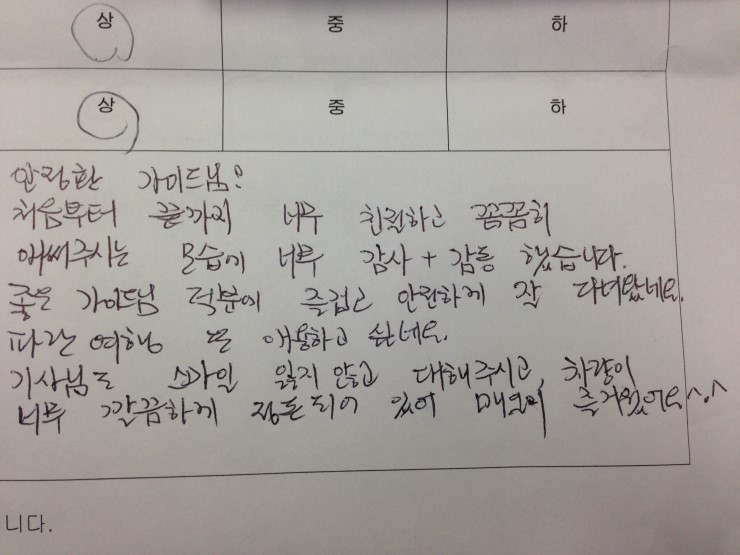 상 중 하
상 중 하
안창환 가이드님!
처음부터 끝까지 너무 친절하고 꼼꼼히
애써주시는 모습에 너무 감사 + 감동 했습니다.
좋은 가이드님 덕분에 즐겁고 안전하게 잘 다녀왔네요.
파란여행 또 애용하고 싶네요.
기사님도 스마일 잃지 않고 대해주시고, 차량이
너무 깔끔하게 정돈되어 있어 매일이 즐거웠어요^.^
니다.